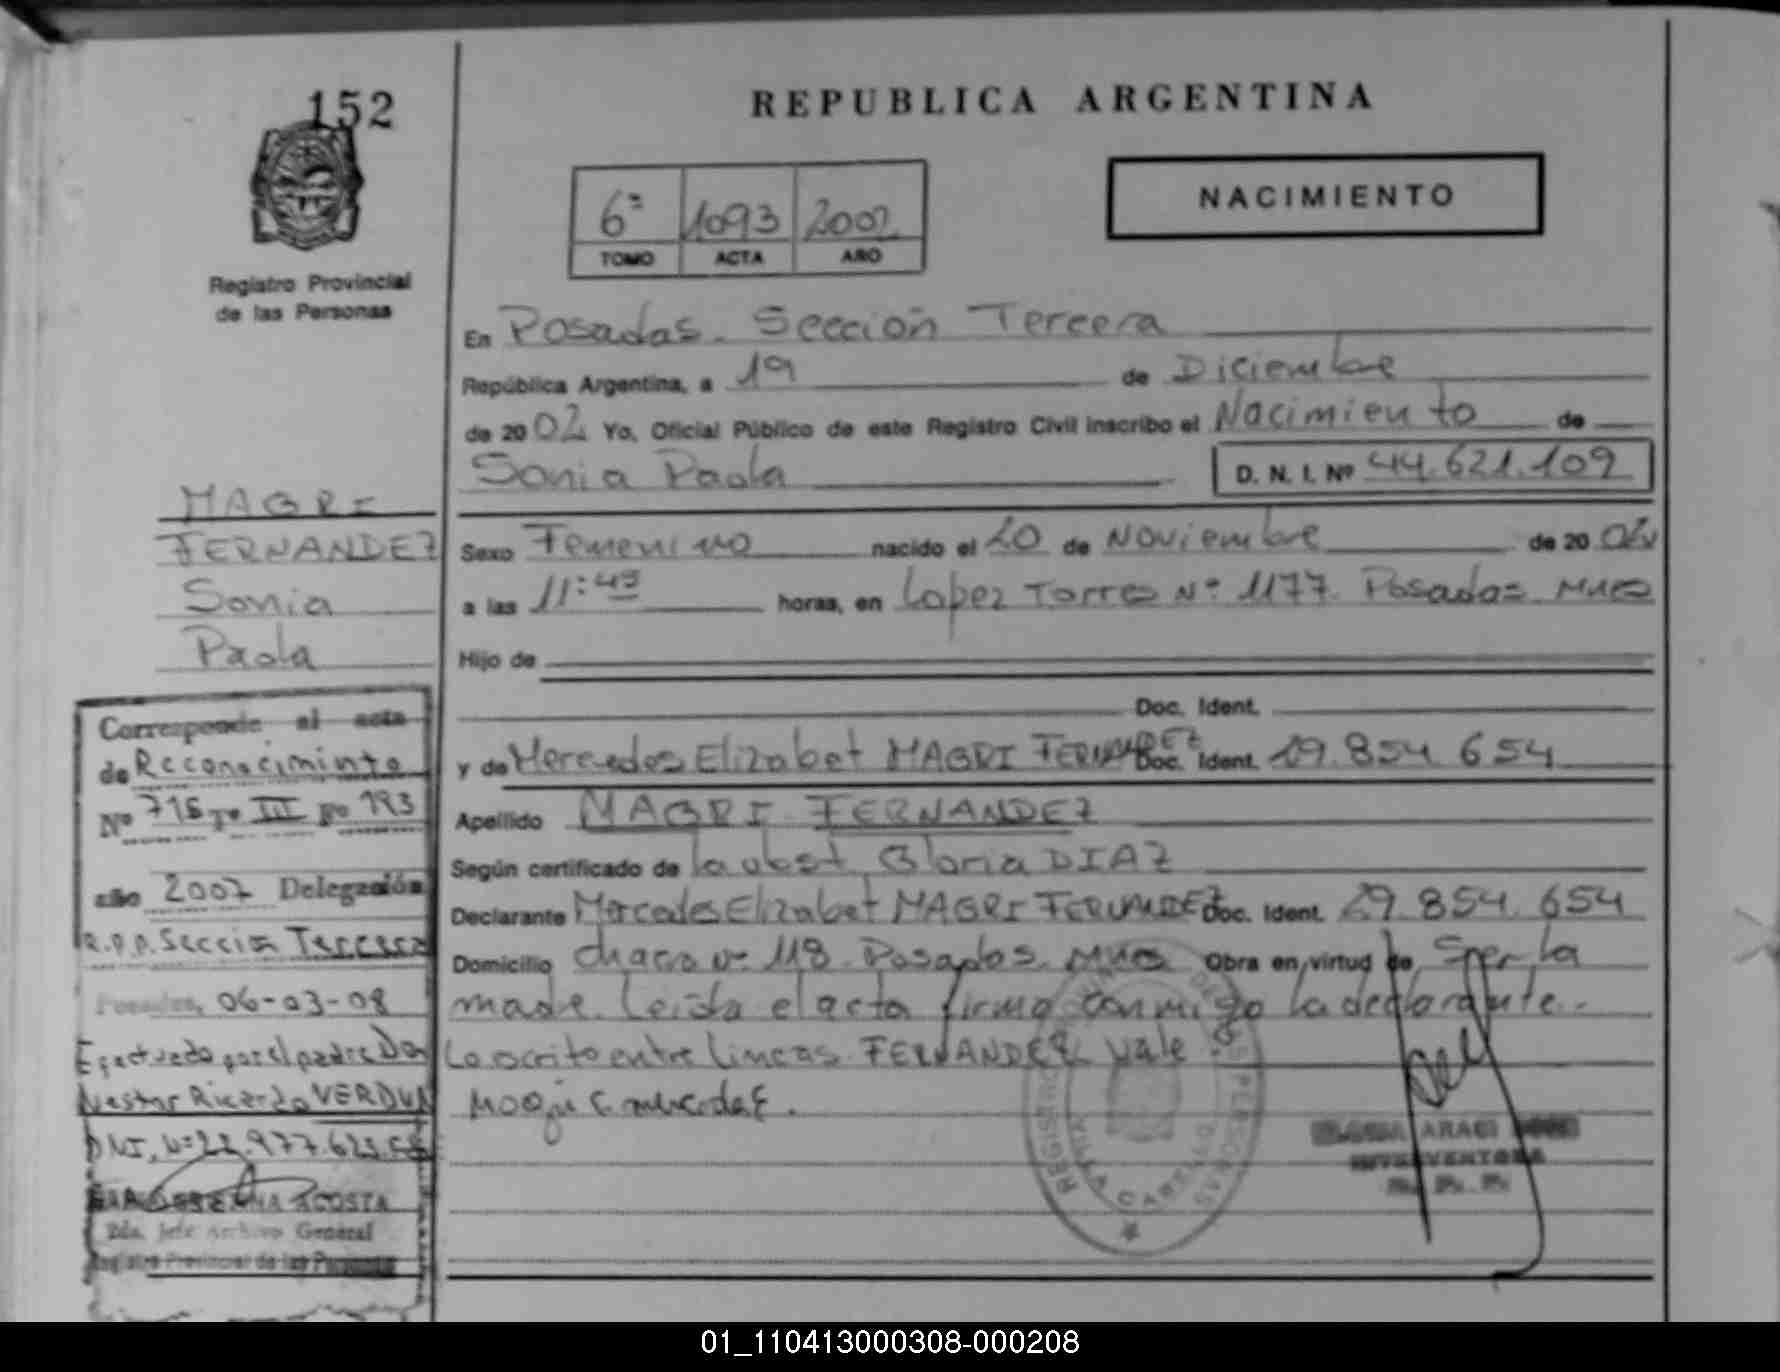 152
REPUBLICA ARGENTINA
6ª 1093 2002
TOMO ACTA AÑO
NACIMIENTO
Registro Provincial
de las Personas
En Posadas. Sección Tercera
República Argentina, a 19 de Diciembre
de 2002 Yo, Oficial Público de este Registro Civil inscribo el Nacimiento de
Sonia Paola D. N. I. Nº 44.621.109
MAGRI
FERNANDEZ
Sonia
Paola
Sexo Femenino nacido el 20 de Noviembre de 2002
a las 11:45 horas, en Lopez Torres Nº 1177. Posadas Mnes
Hijo de
Doc. Ident.
y de Mercedes Elizabet MAGRI FERNANDEZ Doc. Ident. 29.854.654
Apellido MAGRI FERNANDEZ
Según certificado de la obst. Gloria DIAZ
Declarante Mercedes Elizabet MAGRI FERNANDEZ Doc. Ident. 29.854.654
Domicilio chacra Nº 118. Posadas. Mnes Obra en virtud de Ser la
madre. Leida el acta firma conmigo la declarante.
Lo escrito entre lineas. FERNANDEZ Vale
Corresponde al acta
de Reconocimiento
Nº 715 Tº III Fº 193
año 2007 Delegación
R.P.P. Sección Tercera
Posadas, 06-03-08
Efectuado por el padre Don
Nestor Ricardo VERDUN
DNI, Nº 22.977.623.
ACOSTA
2da. Jefe Archivo General
Registro Provincial de las Personas
REGISTRO PROVINCIAL DE LAS PERSONAS
VILLA CABELLO
ARACI
INTERVENTORA
R. P. P.
01_110413000308-000208